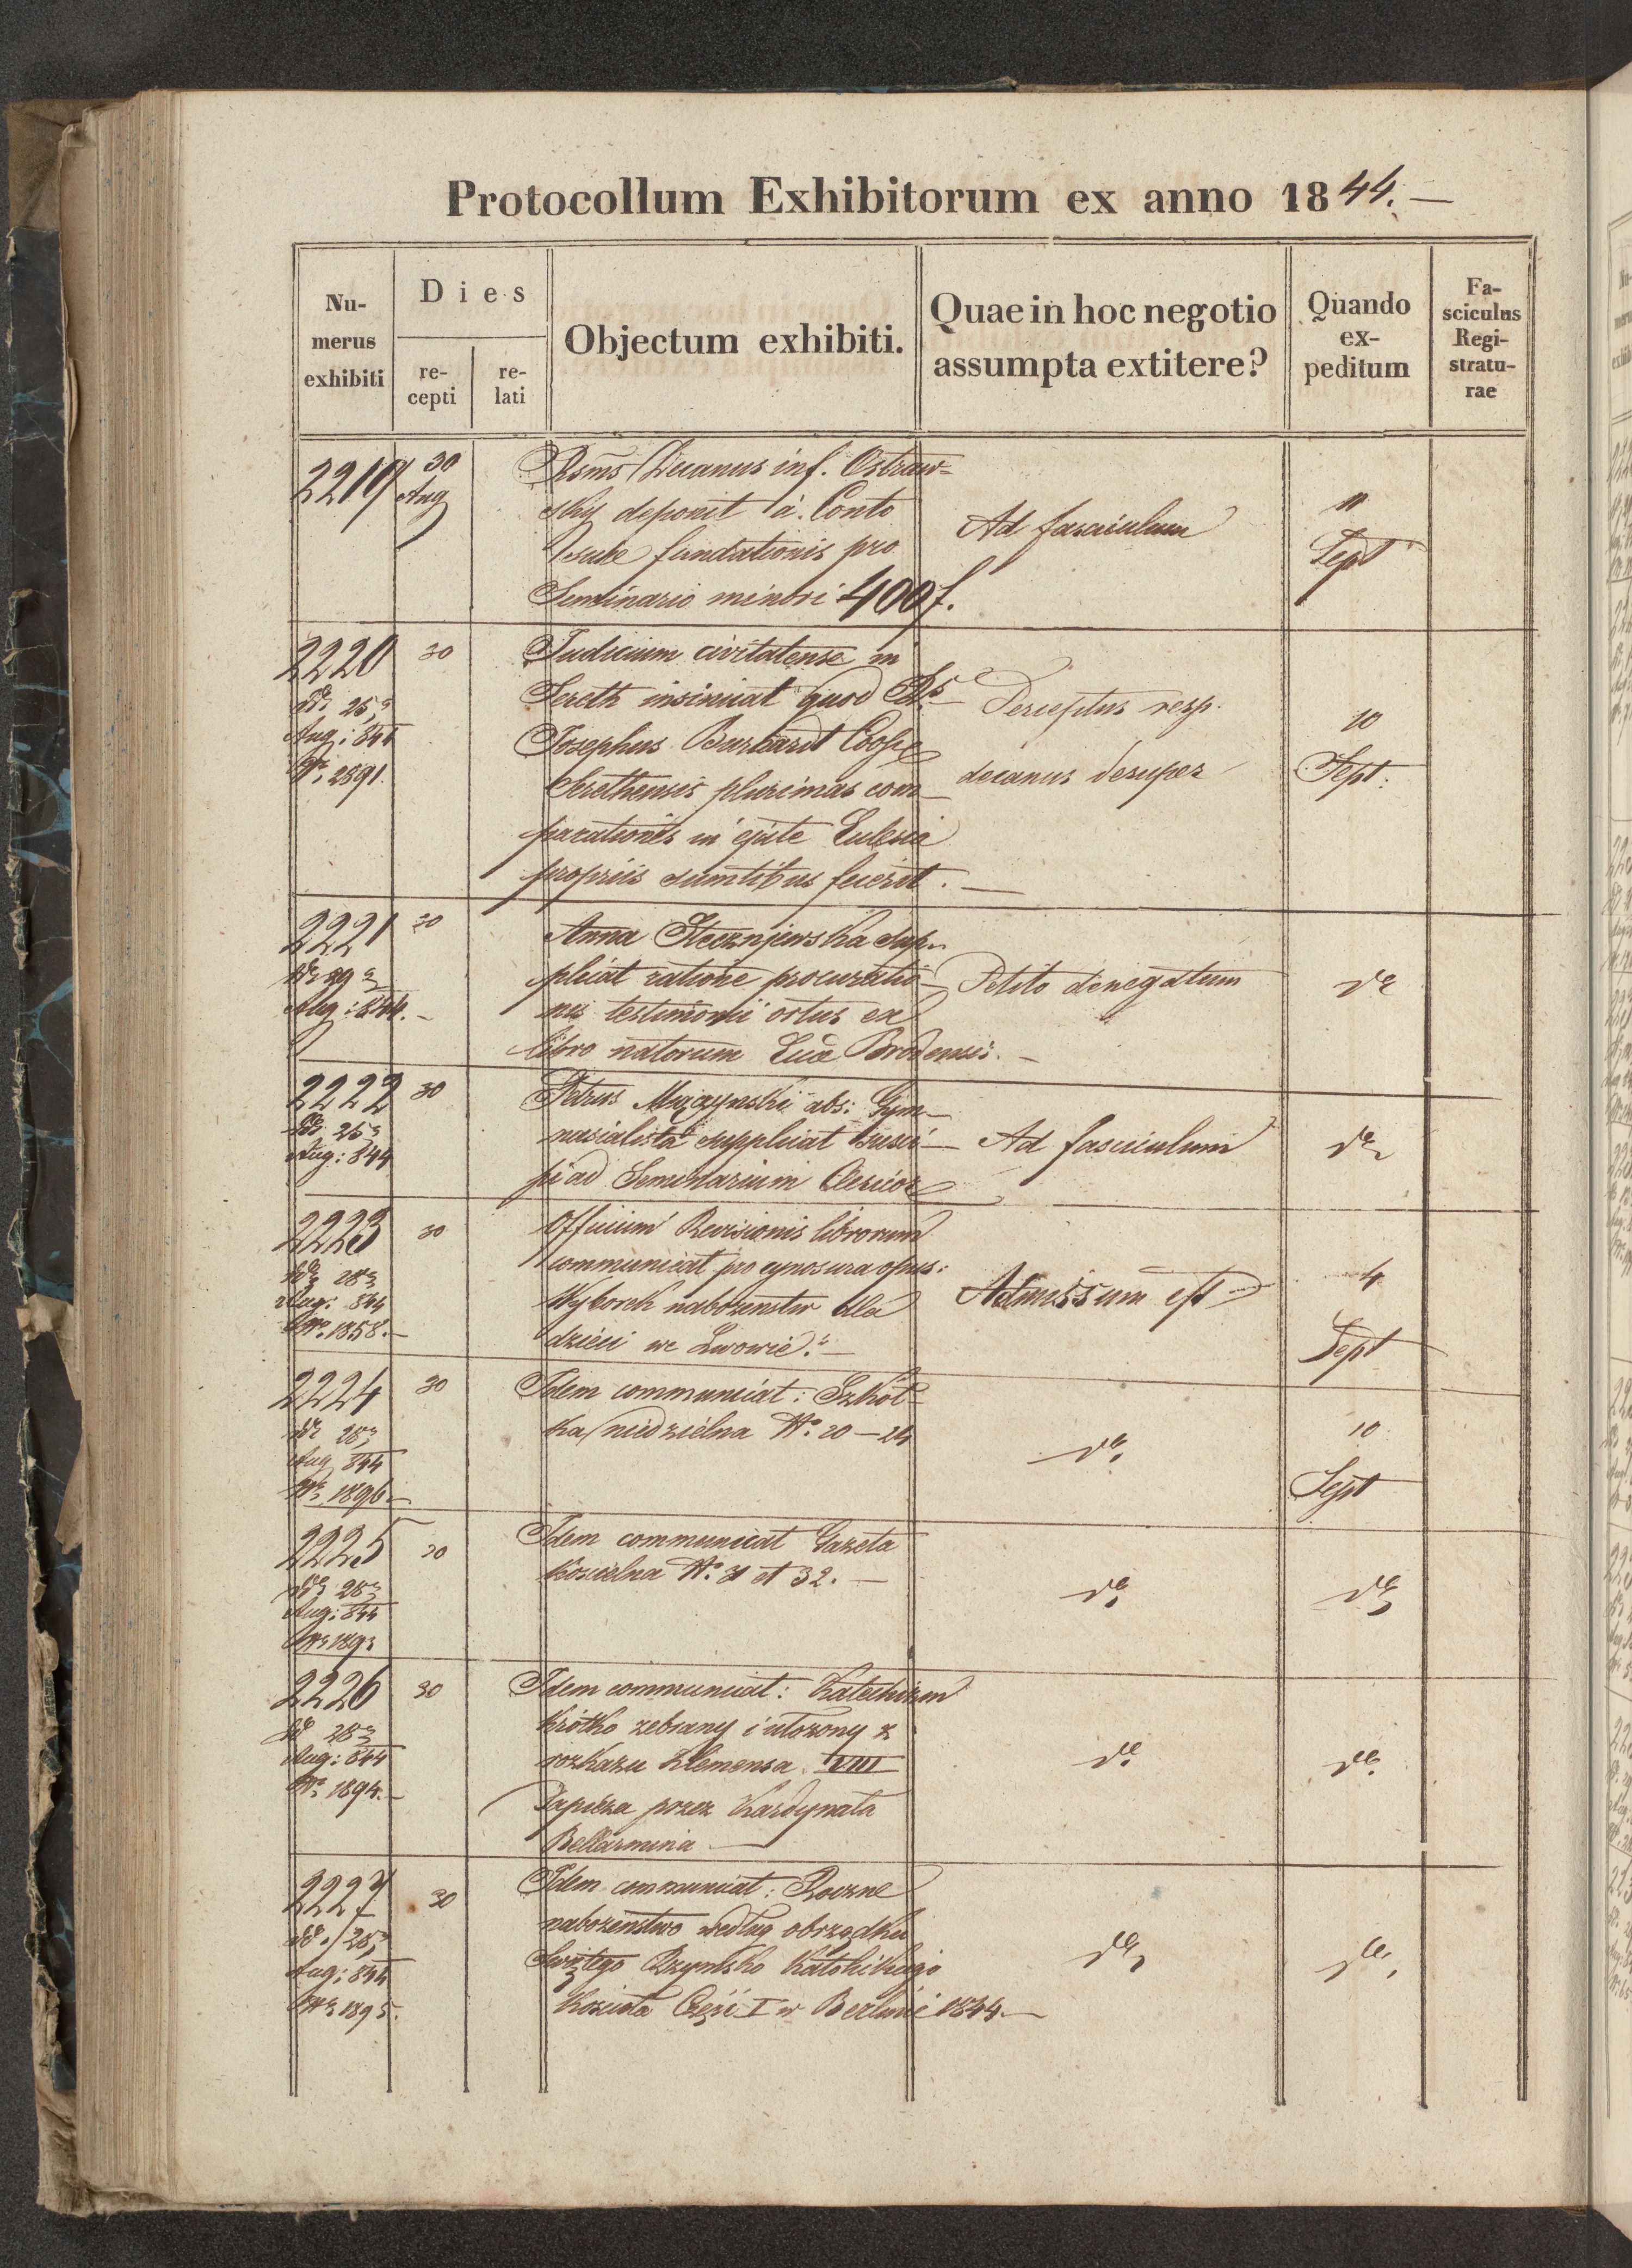 Protocollum Exhibitorum ex anno 1844.—
Nu-
merus
exhibiti
Dies
re-
cepti
re-
lati
Objectum exhibiti.
Quae in hoc negotio
assumpta extitere?
Quando
ex-
peditum
Fa-
sciculus
Regi-
stratu-
rae
2219
30
Aug
Rsms Decanus inf. Ostraw-
skij deponit à Conto
suae fundationis pro
Seminario minori 400 f.
Ad fasciculum
11
Sept
2220
dº 25
Aug: 844
Nº 2891.
30
Judicium civitatense in
Sereth insinuat quod
Josephus
Serethensis plurimas com-
parationes in
propriis sumtibus fecerit.—
Perceptus resp.
decanus desuper
10
Sept:
2221
dº 29
Aug: 844.—
30
Anna Stecznjewska sup-
plicat ratione procuratio-
nis testimonii ortus ex
libro natorum Brodensis.—
Petito denegatum
dº
2222
dº 25
Aug: 844
30
Petrus abs: Gym-
nasialista supplicat susci-
pi ad Seminarium Clericor
Ad fasciculum
dº
2223
dº 28
Aug: 844
Nº 1858.—
30
Officium Revisionis librorum
communicat pro cynosura opus:
Wyborek nabozenstw dla
dzieci we Lwowie.—
Admissum est
4
Sept
2224
dº 28
Aug 844
Nº 1896.—
30
Idem communicat: Szkół-
ka niedzielna Nº 20—24
dº
10
Sept
2225
dº 28
Aug: 844
Nº 189
30
Idem communicat Gazeta
Koscielna Nº 31 et 32.—
dº
dº
2226
dº 28
Aug: 844
Nº 1894.—
30
Idem communicat: Katechizm
krótko zebrany i ułozony z
rozkazu Klemensa VIII
Papieża przez Kardynała
Bellarmina—
dº
dº
2227
dº 28
Aug: 844
Nº 1895.
30
Idem communicat: Roczne
nabozenstwo według obrządku
Swiętego Rzymsko Katolickiego
Koscioła Częśc I w Berlinie 1844.—
dº
dº